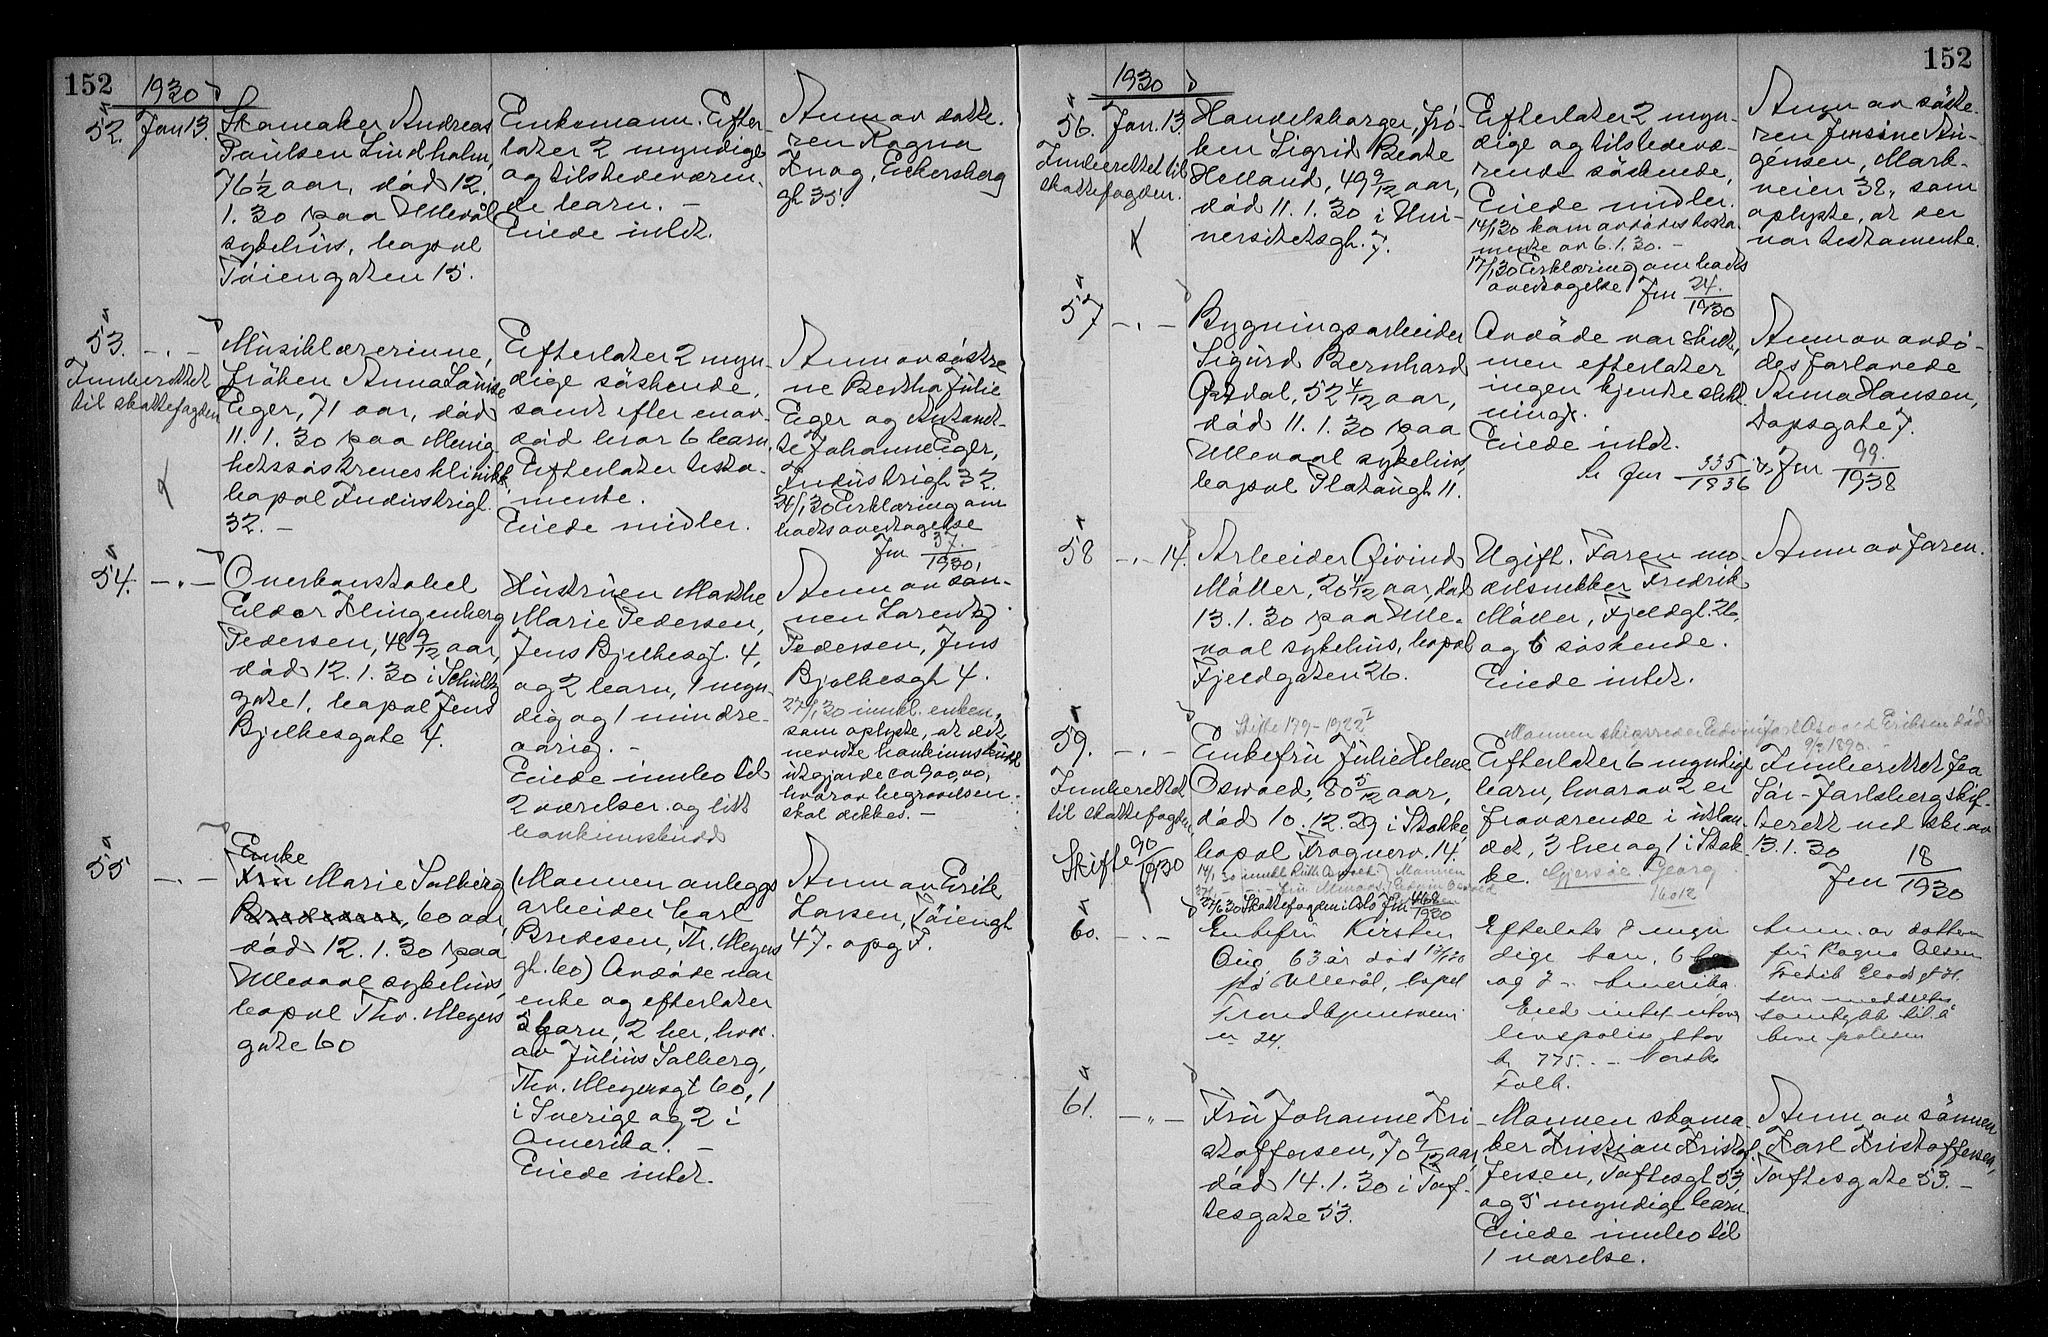 152
1930
52. Jan 13.
Skomaker Andreas
Paulsen Lindholm,
76 1/2 aar, död 12.
1.30 paa Ullevål
sykehus, bopæl
Töiengaten 15.
Enkemann. Efter-
later 2 myndige
og tilstedeværen-
de barn. -
Eiede intet.
Anm av datte-
ren Ragna
Krog, Eckersberg
gt 35.
53. - " -
Innberettet
til skattefogden
Musiklærerinne,
fröken Anna Louise
Eger, 71 aar, död
11.1.30 paa Menig-
hetssöstrenes klinikk,
bopæl Industrigt.
32. -
Efterlater 2 myn-
dige söskende,
samt efter en av-
död bror 6 barn.
Efterlater testa-
mente.
Eiede midler.
Anm av söstre
ne Bertha Julie
Eger og
Johanne Eger,
Industrigt 32.
/1 30 Erklæring om
bodsovertagelse
Jnr 37/1930
54. - " -
Overkonstabel
Eilder Klingenberg
Pedersen, 48 9/12 aar,
död 12.1.30 i Schultz
gate 1, bopæl Jens
Bjelkesgate 4.
Hustruen Marthe
Marie Pedersen,
Jens Bjelkesgt. 4,
og 2 barn, 1 myn-
dig og 1 mindre-
aarig. -
Eiede innbo til
2 værelser og litt
bankinnskudd
Anm av søn-
nen Lorentz
Pedersen, Jens
Bjelkesgt 4.
27/1 30 innk. enken,
som oplyste, at det
nevnte bankinnskudd
utgjorde ca 900,00,
hvorav begravelsen
skal dekkes. -
55 - " -
Enke
Fru Marie Solberg
60 aar,
död 12.1.30 paa
Ullevaal sykehus,
bopæl Thv. Meyers
gate 60
(Mannen anleggs
arbeider Carl
Bredesen, Th. Meyers
gt. 60) Avdöde var
enke og efterlater
5 barn, 2 her, hvor-
av Julius Solberg,
Thv. Meyersgt 60, 1
i Sverige og 2 i
Amerika. -
Eiede intet.
Anm av Erik
Larsen, Töiengt
47. opg F.
152
1930
56. Jan. 13.
Innberettet til
skattefogden.
Handelsborger, frö-
ken Sigrid Beate
Helland, 49 9/12 aar,
död 11.1.30 i Uni-
versitetsgt. 7.
Efterlater 2 myn-
dige og tilstedevæ-
rende söskende,
Eiede midler.
14/1 30 kom avdödes testa-
mente av 6.1.30. -
17/1 30 Erklæring om bods
overtagelse Jnr 24./1930
Anm av söste-
ren Jensine An-
génsen, Mark-
veien 38, som
oplyste, at der
var testamente.
57 - " -
Bygningsarbeider
Sigurd Bernhard
Opdal, 52 4/12 aar,
död 11.1.30 paa
Ullevaal sykehus,
bopæl Platougt 11.
Avdöde var skilt,
men efterlater
ingen kjente slekt-
ninger.
Eiede intet.
Se Jnr 335/1936 Jnr 99./1938
Anm av avdö-
des forlovede
Anna Hansen,
Dopsgate 7.
58 - " - 14.
Arbeider Öivind
Möller, 20 4/12 aar, död
13.1.30 paa Ulle-
vaal sykehus, bopæl
Fjeldgaten 26.
Ugift. Faren mö-
delsnekker Fredrik
Möller, Fjeldgt. 26,
og 6 söskende.
Eiede intet.
Anm av faren.
59. - " -
Innberettet
til skattefogden
Skifte 90/1930
Skifte 179-1922 I
Enkefru Julie Helene
Oswold, 80 5/12 aar,
död 10.12.29 i Stokke,
bopæl Frognerv. 14.
Skattefogden i Oslo Jnr 468/1930
Mannen skipsreder Edvin Carl Oswold Eriksen död
9/3 1890. -
Efterlater 6 myndige
barn, hvorav 2 er
fraværende i utlan-
det, 3 her og 1 i Stok-
ke. Gjersöe Georg
16012
Innberettet fra
Sör-Jarlsberg skif-
terett ved skr. av
13.1.30
Jnr 18/1930
60. - " -
Enkefru Kirsten
Aug 63 år död 12/1 30
på Ullevål, bopel
Trondhjemsvei
en 24.
Efterlater 8 myn
dige barn, 6 her
og 2 i Amerika.
Eied intet utover
livspolise stor
kr 775. - Norske
Folk.
Anm. av datteren
fru Ragna Olsen
som meddeltes
samtykke til å
heve polisen
61. - " -
Fru Johanne Kri-
stoffersen, 70 9/12 aar,
död 14.1.30 i Tof-
tesgate 53.
Mannen skoma-
ker Kristian Kristof-
fersen, Toftesgt 53,
og 5 myndige barn.
Eiede innbo til
1 værelse.
Anm av sönnen
Karl Kristoffersen,
Toftesgate 53. -